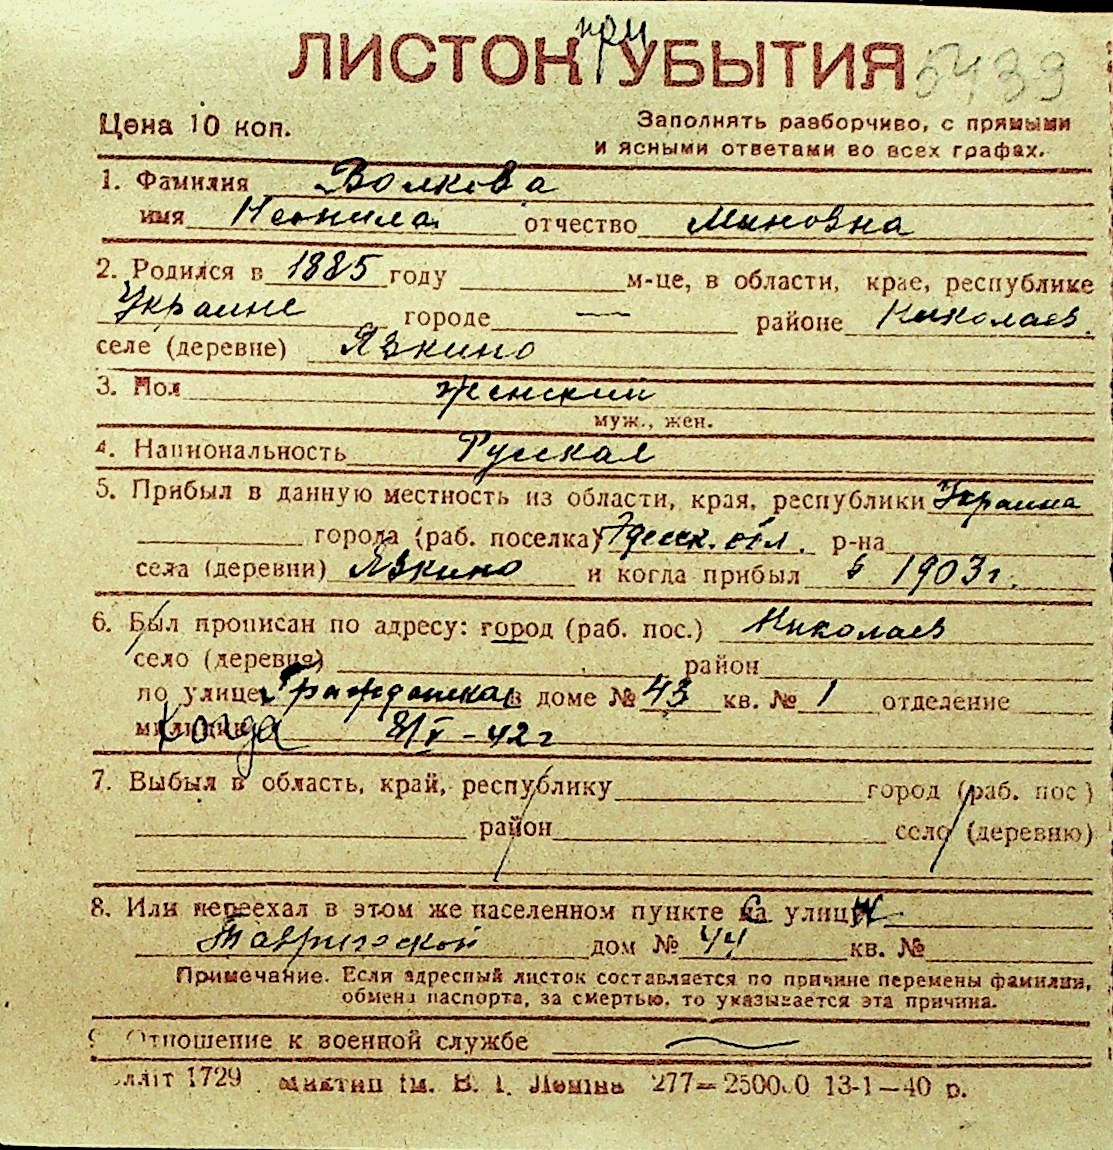 ЛИСТОК при УБЫТИЯ 5439
Цена 10 коп. Заполнять разборчиво, с прямыми
и ясными ответами во всех графах.
1. Фамилия Волкова
имя Неонила отчество Миновна
2. Родился в 1885 году м-це, в области, крае, республике
Украине городе — районе Николаев.
селе (деревне) Явкино
3. Пол женский
муж., жен.
4. Национальность Русская
5. Прибыл в данную местность из области, края, республики Украина
города (раб. поселка) Одесск. обл. р-на
села (деревни) Явкино и когда прибыл в 1903 г.
6. Был прописан по адресу: город (раб. пос.) Николаев
село (деревня) район
по улице Гражданская в доме № 43 кв. № 1 отделение
милиции Когда 42 г
7. Выбыл в область, край, республику город (раб. пос)
район село (деревню)
8. Или переехал в этом же населенном пункте на улицу
Таврической дом № 44 кв. №
Примечание. Если адресный листок составляется по причине перемены фамилии,
обмена паспорта, за смертью, то указывается эта причина.
Отношение к военной службе —
1729 ім. В. І. Леніна 277— 13-1—40 р.